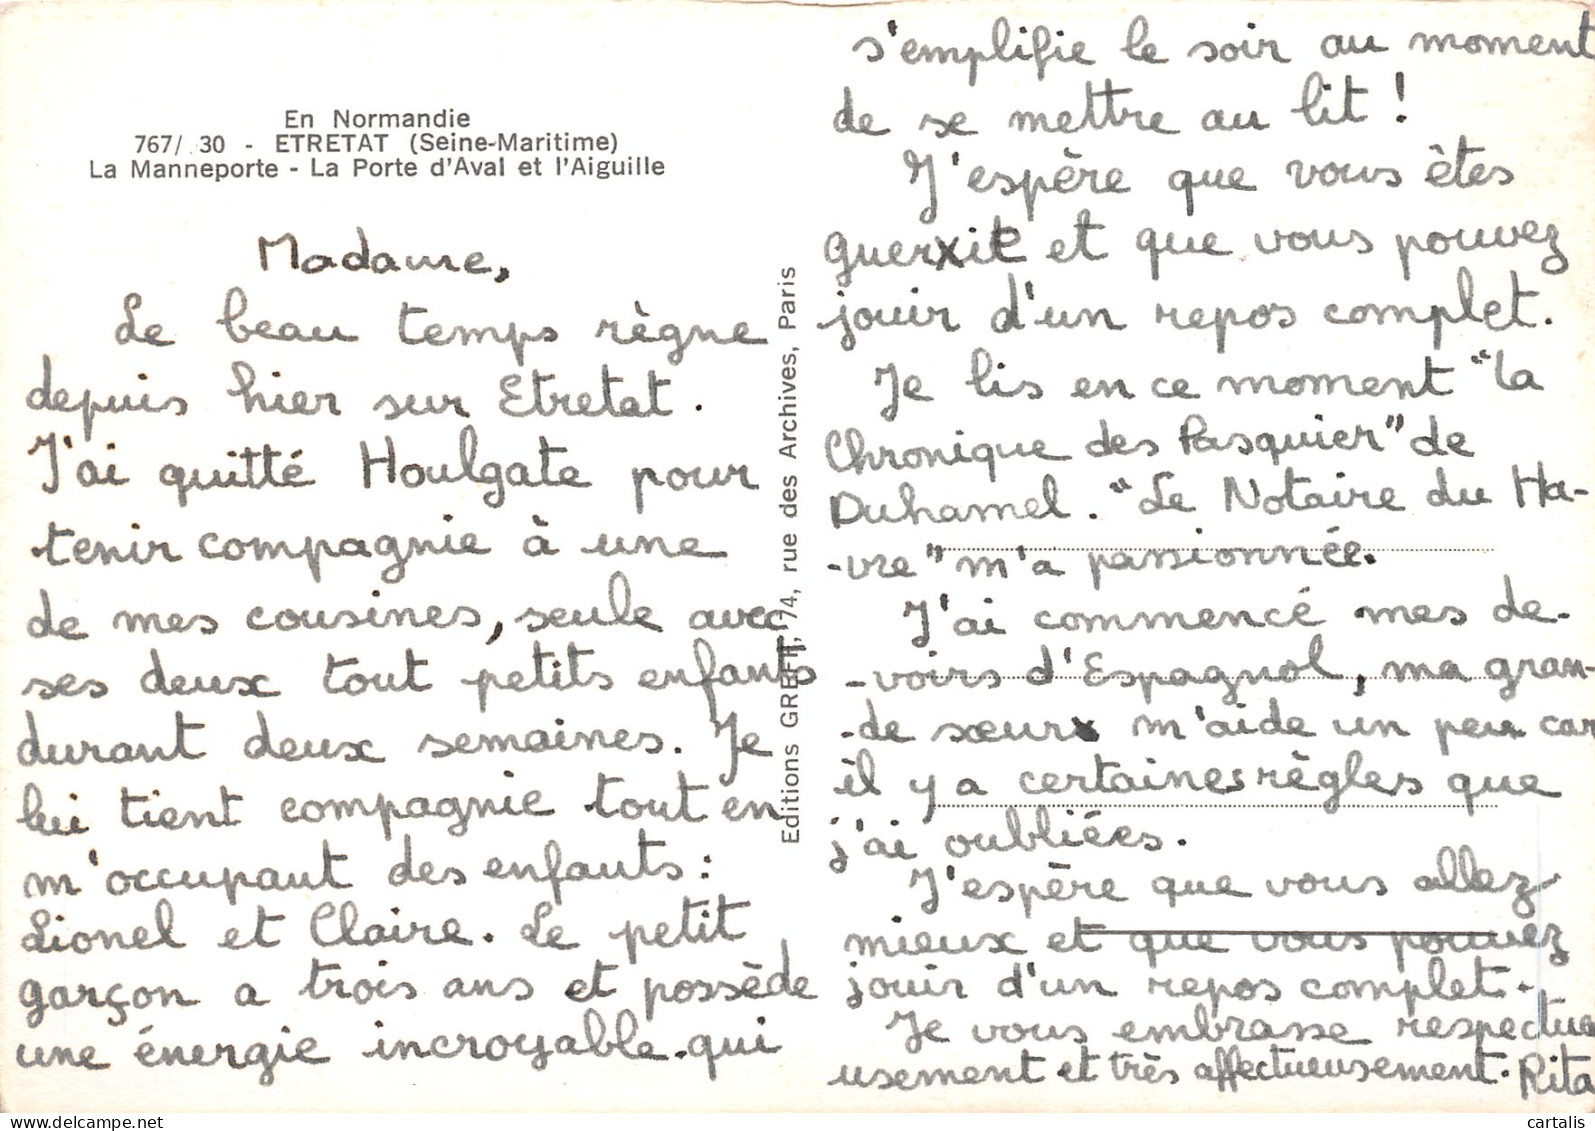 En Normandie
767/ 30 - ETRETAT (Seine-Maritime)
La Manneporte - La Porte d'Aval et l'Aiguille
Madame,
Le beau temps règne
depuis hier sur Etretat.
J'ai quitté Houlgate pour
tenir compagnie à une
de mes cousines, seule avec
ses deux tout petits enfants
durant deux semaines. Je
lui tient compagnie tout en
m'occupant des enfants :
Lionel et Claire. Le petit
garçon a trois ans et possède
une énergie incroyable qui
Editions GREFF, 74, rue des Archives, Paris
s'emplifie le soir au moment
de se mettre au lit !
J'espère que vous êtes
guerite et que vous pouvez
jouir d'un repos complet.
Je lis en ce moment "la
Chronique des Pasquier" de
Duhamel. "Le Notaire du Ha-
-vre" m'a passionnée.
J'ai commencé mes de-
-voirs d'Espagnol, ma gran-
-de sœur m'aide un peu car
il y a certaines règles que
j'ai oubliées.
J'espère que vous allez
mieux et que vous pouvez
jouir d'un repos complet.
Je vous embrasse respectue
usement et très affectueusement. Rita
cartalis